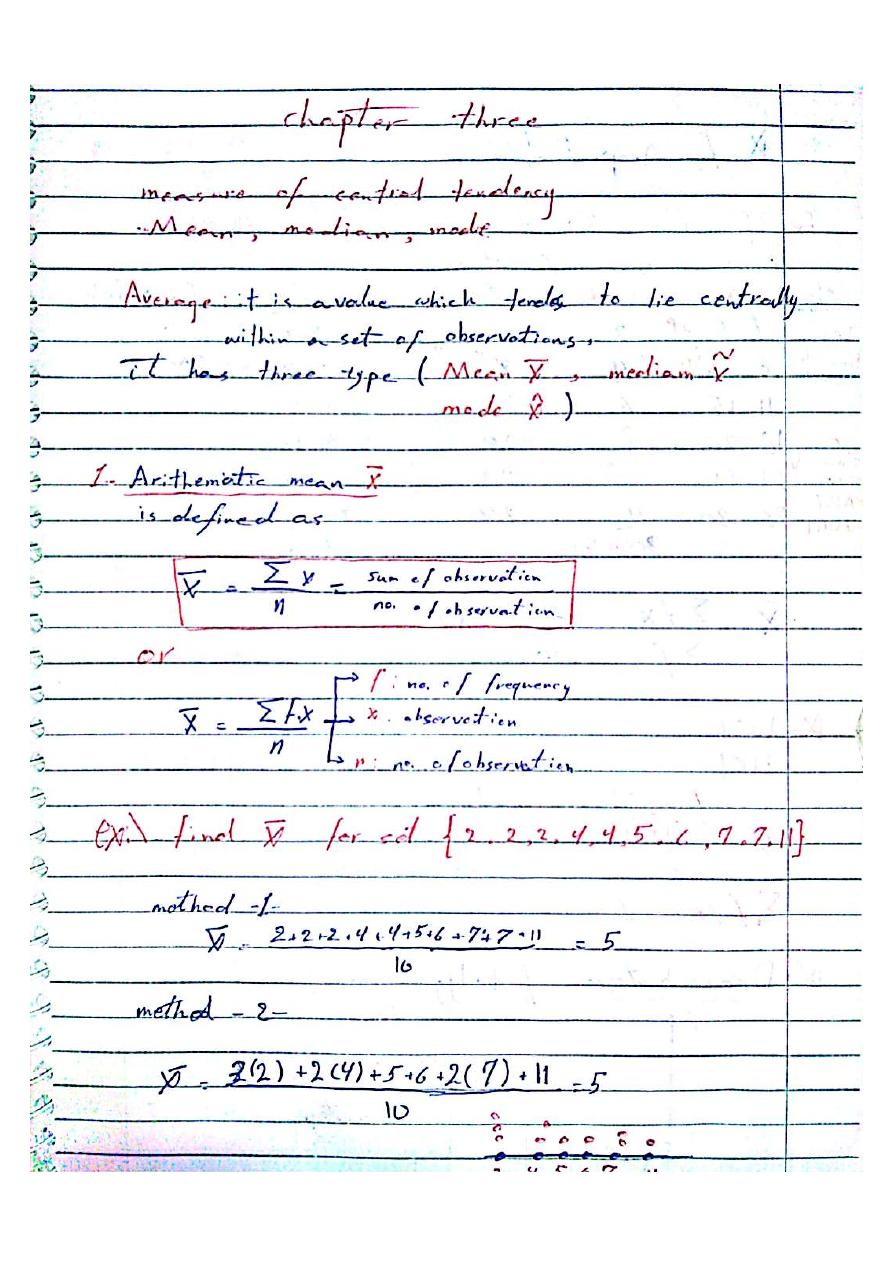 chapter three
measure of central tendency
Mean, median, mode
Average: it is a value which tends to lie centrally
within a set of observations,
it has three type ( Mean X̅ , mediam X̃
mode X̂ )
1- Arithematic mean X̅
is defined as
X̅ = ∑x/n = sum of observation / no. of observation
or
f : no. of frequency
X̅ = ∑f.x / n x : observation
n : no. of observation
Ex:\ find X̅ for set {2, 2, 2, 4, 4, 5, 6, 7, 7, 11}
method -1-
X̅ = 2+2+2+4+4+5+6+7+7+11 / 10 = 5
method -2-
X̅ = 3(2)+2(4)+5+6+2(7)+11 / 10 = 5